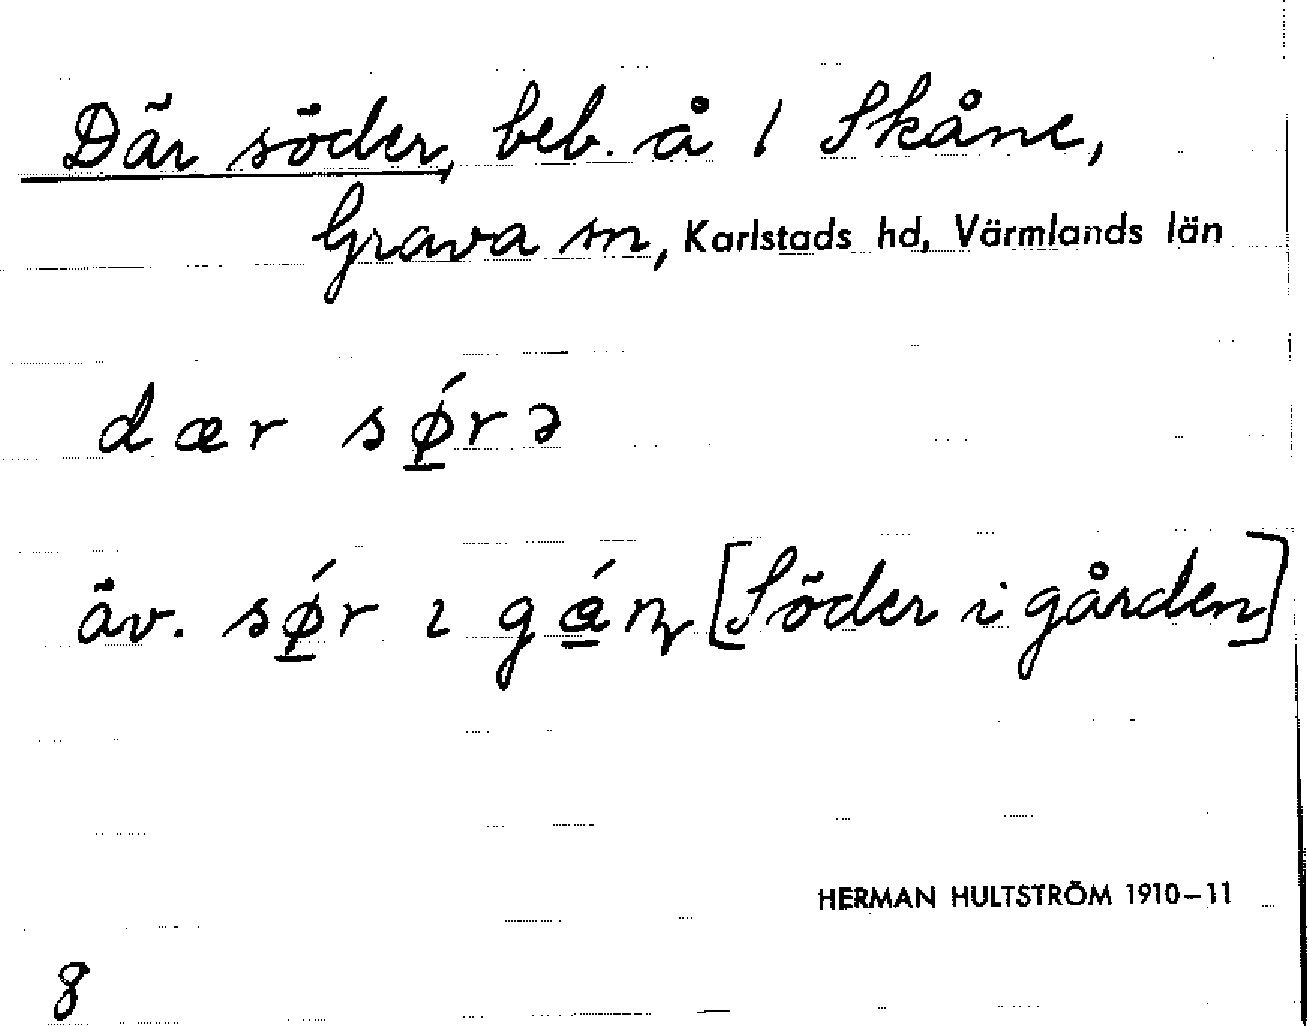 Där söder, beb. å 1 Skåne,
Grava sn, Karlstads hd, Värmlands län
dær sǿ̱rə
äv. sǿ̱r ɩ gá̱ɳ [Söder i gården]
HERMAN HULTSTRÖM 1910–11
8